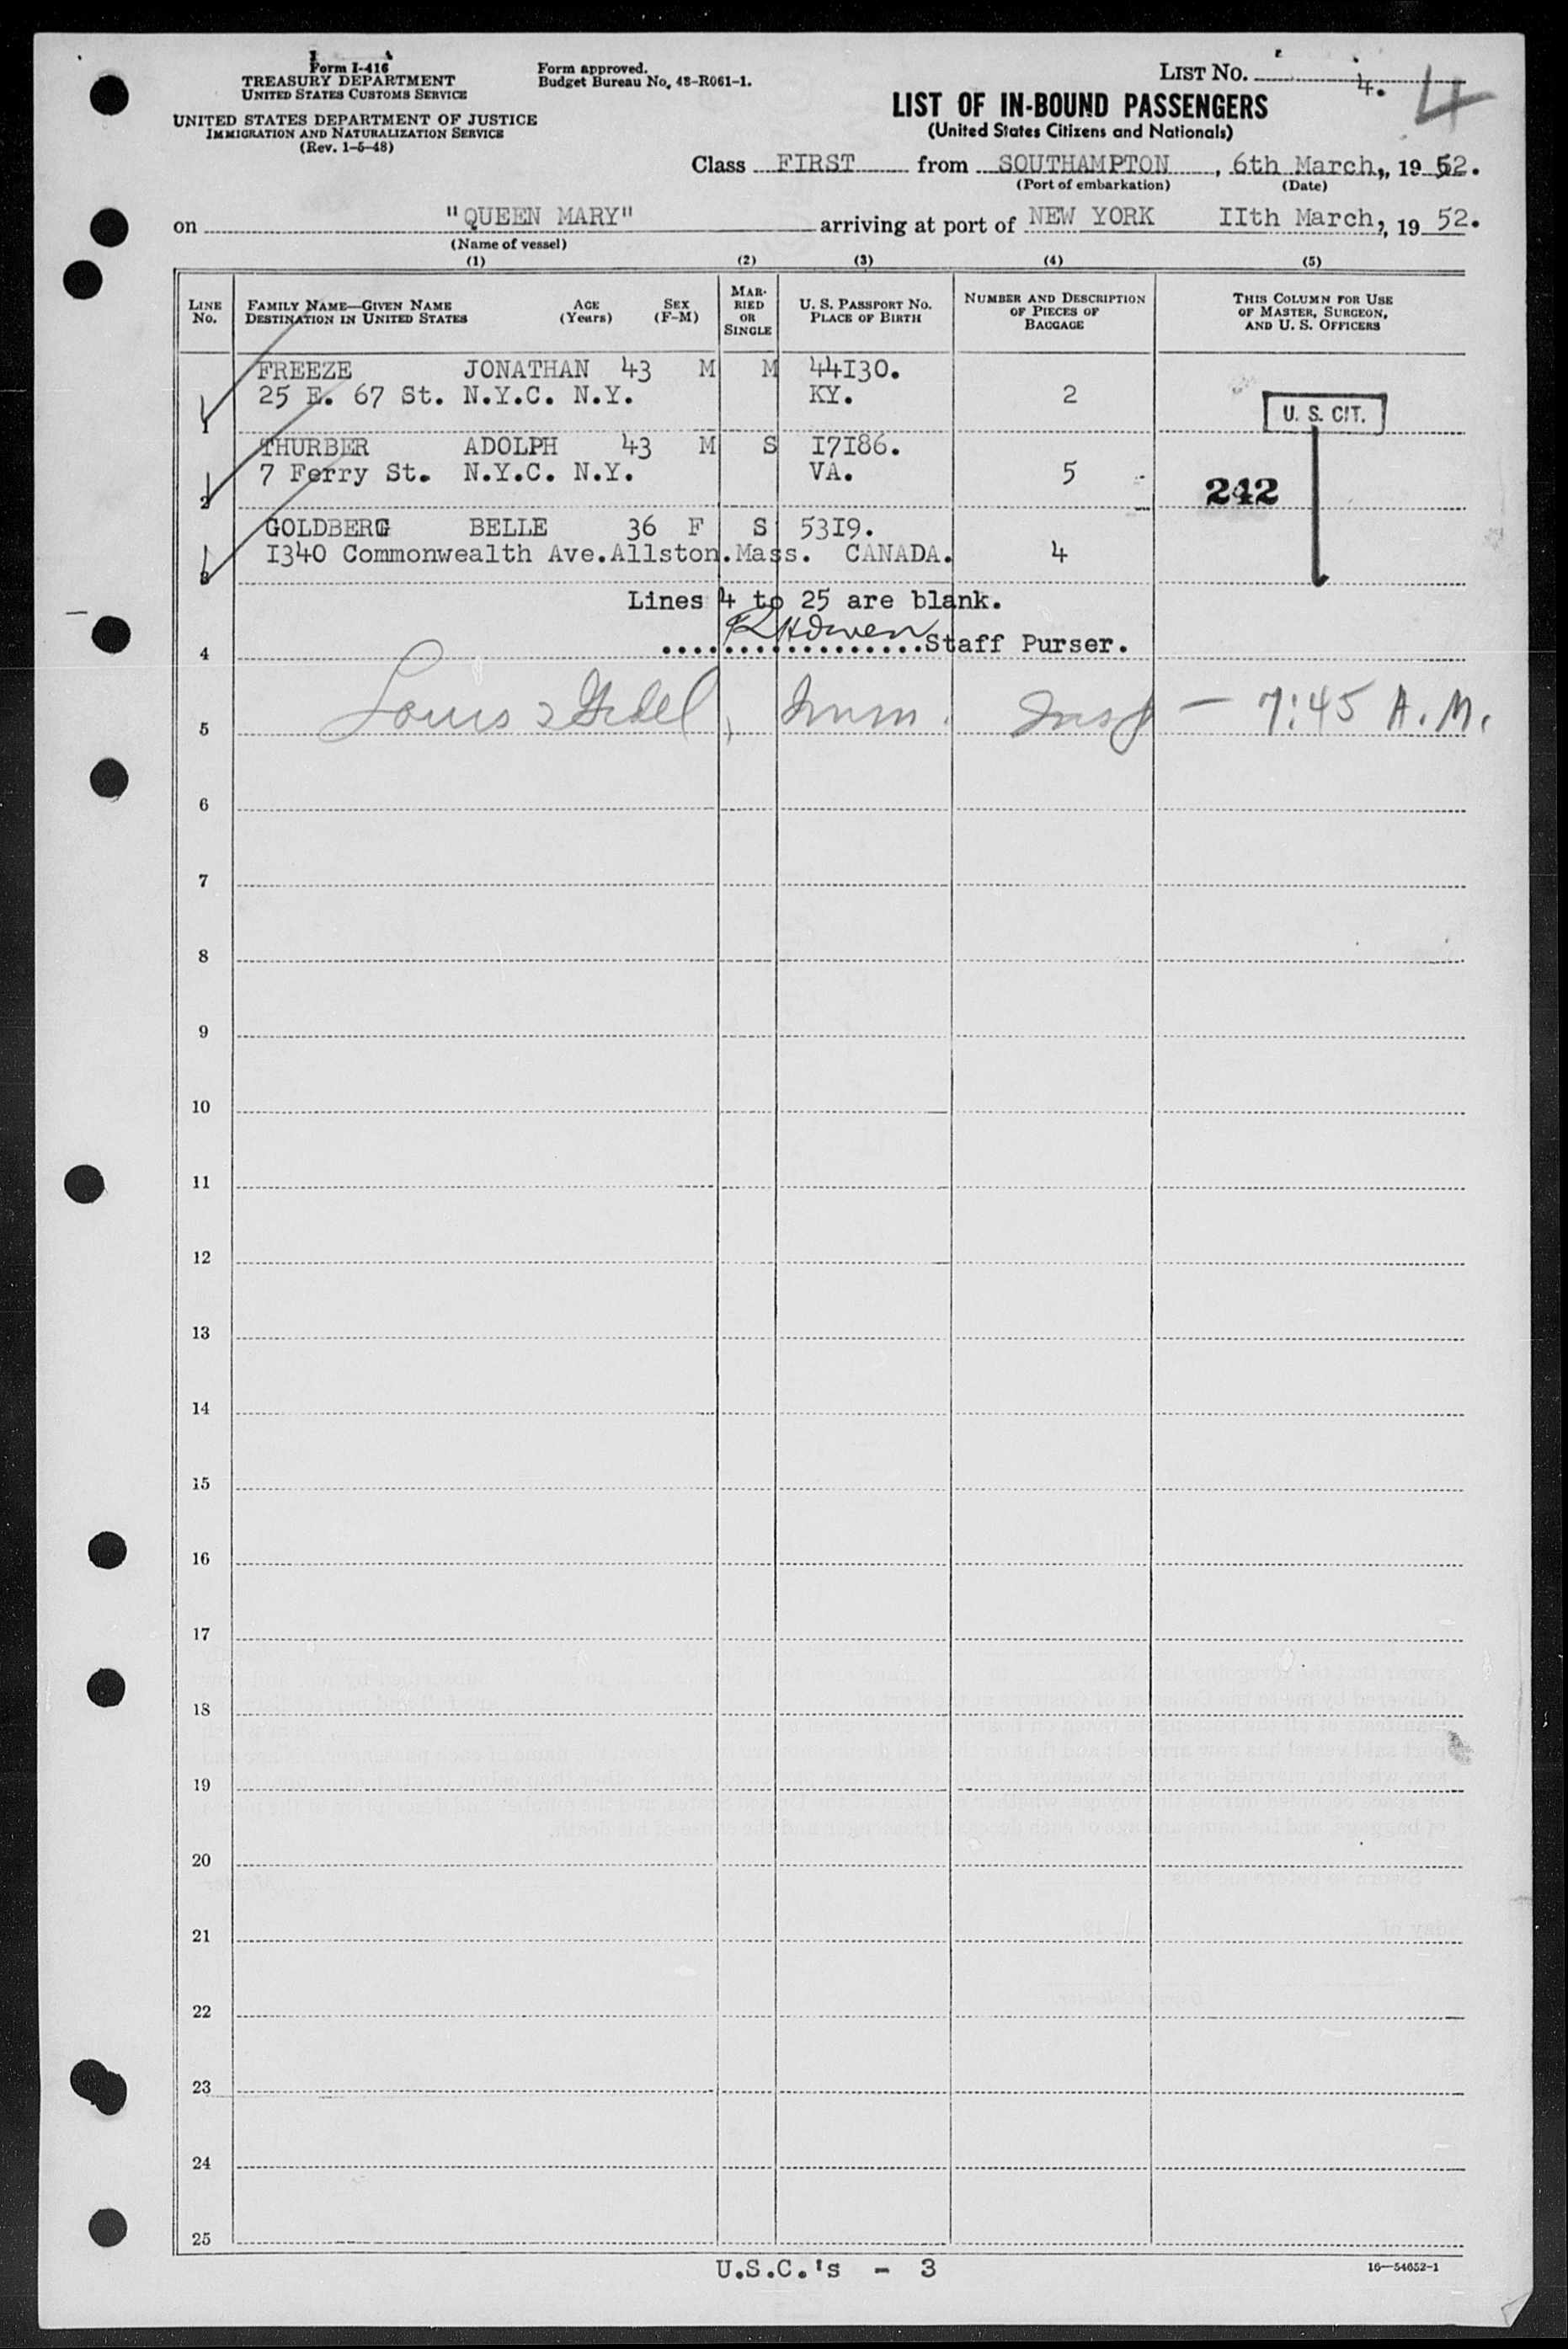 Form I-416
TREASURY DEPARTMENT
UNITED STATES CUSTOMS SERVICE
UNITED STATES DEPARTMENT OF JUSTICE
IMMIGRATION AND NATURALIZATION SERVICE
(Rev. 1-5-48)
Form approved.
Budget Bureau No. 43-R061-1.
LIST No. 4. 4
LIST OF IN-BOUND PASSENGERS
(United States Citizens and Nationals)
Class FIRST from SOUTHAMPTON, 6th March,, 19 52.
(Port of embarkation) (Date)
on "QUEEN MARY" arriving at port of NEW YORK IIth March,, 19 52.
(Name of vessel)
(1) (2) (3) (4) (5)
LINE No. FAMILY NAME—GIVEN NAME DESTINATION IN UNITED STATES AGE (Years) SEX (F-M) MARRIED OR SINGLE U. S. PASSPORT NO. PLACE OF BIRTH NUMBER AND DESCRIPTION OF PIECES OF BAGGAGE THIS COLUMN FOR USE OF MASTER, SURGEON, AND U. S. OFFICERS
FREEZE JONATHAN 43 M M 44I30.
1 25 E. 67 St. N.Y.C. N.Y. KY. 2
U. S. CIT.
THURBER ADOLPH 43 M S I7I86.
2 7 Ferry St. N.Y.C. N.Y. VA. 5
242
GOLDBERG BELLE 36 F S 53I9.
3 I340 Commonwealth Ave.Allston.Mass. CANADA. 4
Lines 4 to 25 are blank.
4 ................Staff Purser.
5 Louis Imm. Insp — 7:45 A.M.
6
7
8
9
10
11
12
13
14
15
16
17
18
19
20
21
22
23
24
25
U.S.C.'s - 3
16—54652-1